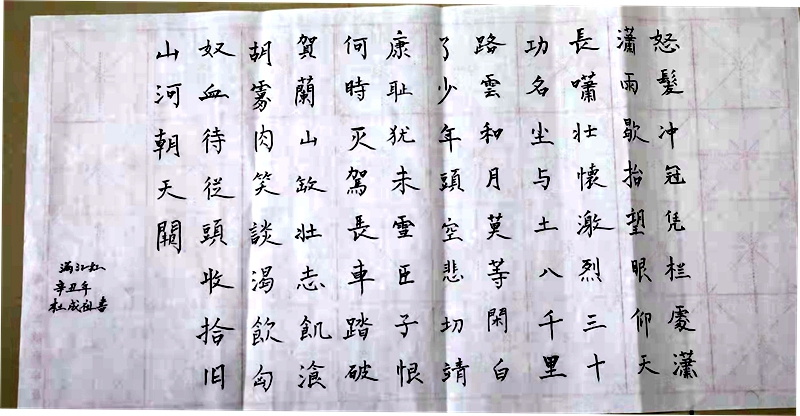 怒髮冲冠凭栏處瀟
瀟雨歇抬望眼仰天
長嘯壮懷激烈三十
功名尘与土八千里
路雲和月莫等閑白
了少年頭空悲切靖
康耻犹未雪臣子恨
何時灭駕長車踏破
賀蘭山缺壮志飢湌
胡虜肉笑談渴飲匈
奴血待從頭收拾旧
山河朝天闕
满江红
辛丑年
杜成祖書